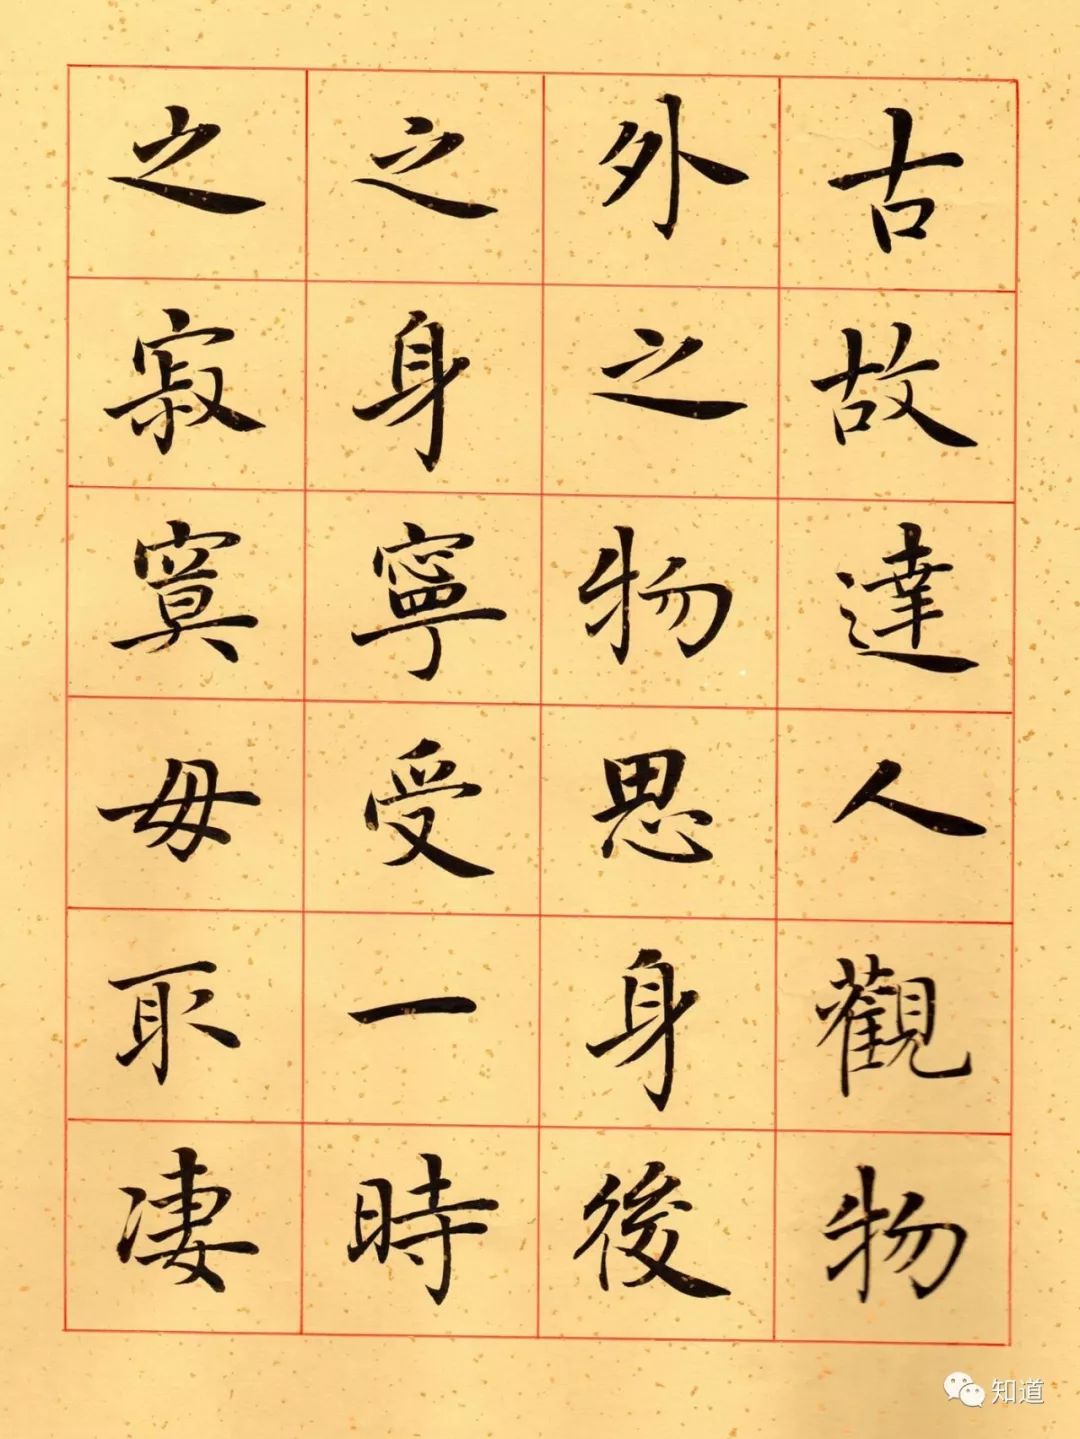 古故達人觀物
外之物思身後
之身寧受一時
之寂寞毋取凄
知道